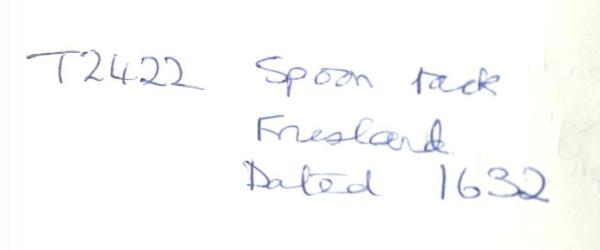 T2422 Spoon rack
Friesland
Dated 1632